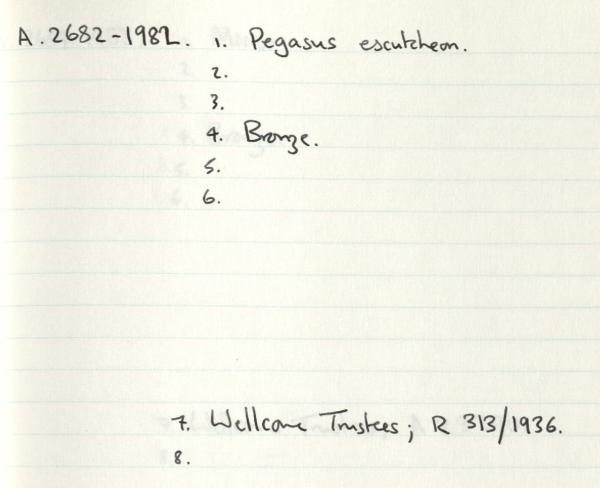 A.2682-1982. 1. Pegasus escutcheon.
2.
3.
4. Bronze.
5.
6.
7. Wellcome Trustees; R 313/1936.
8.